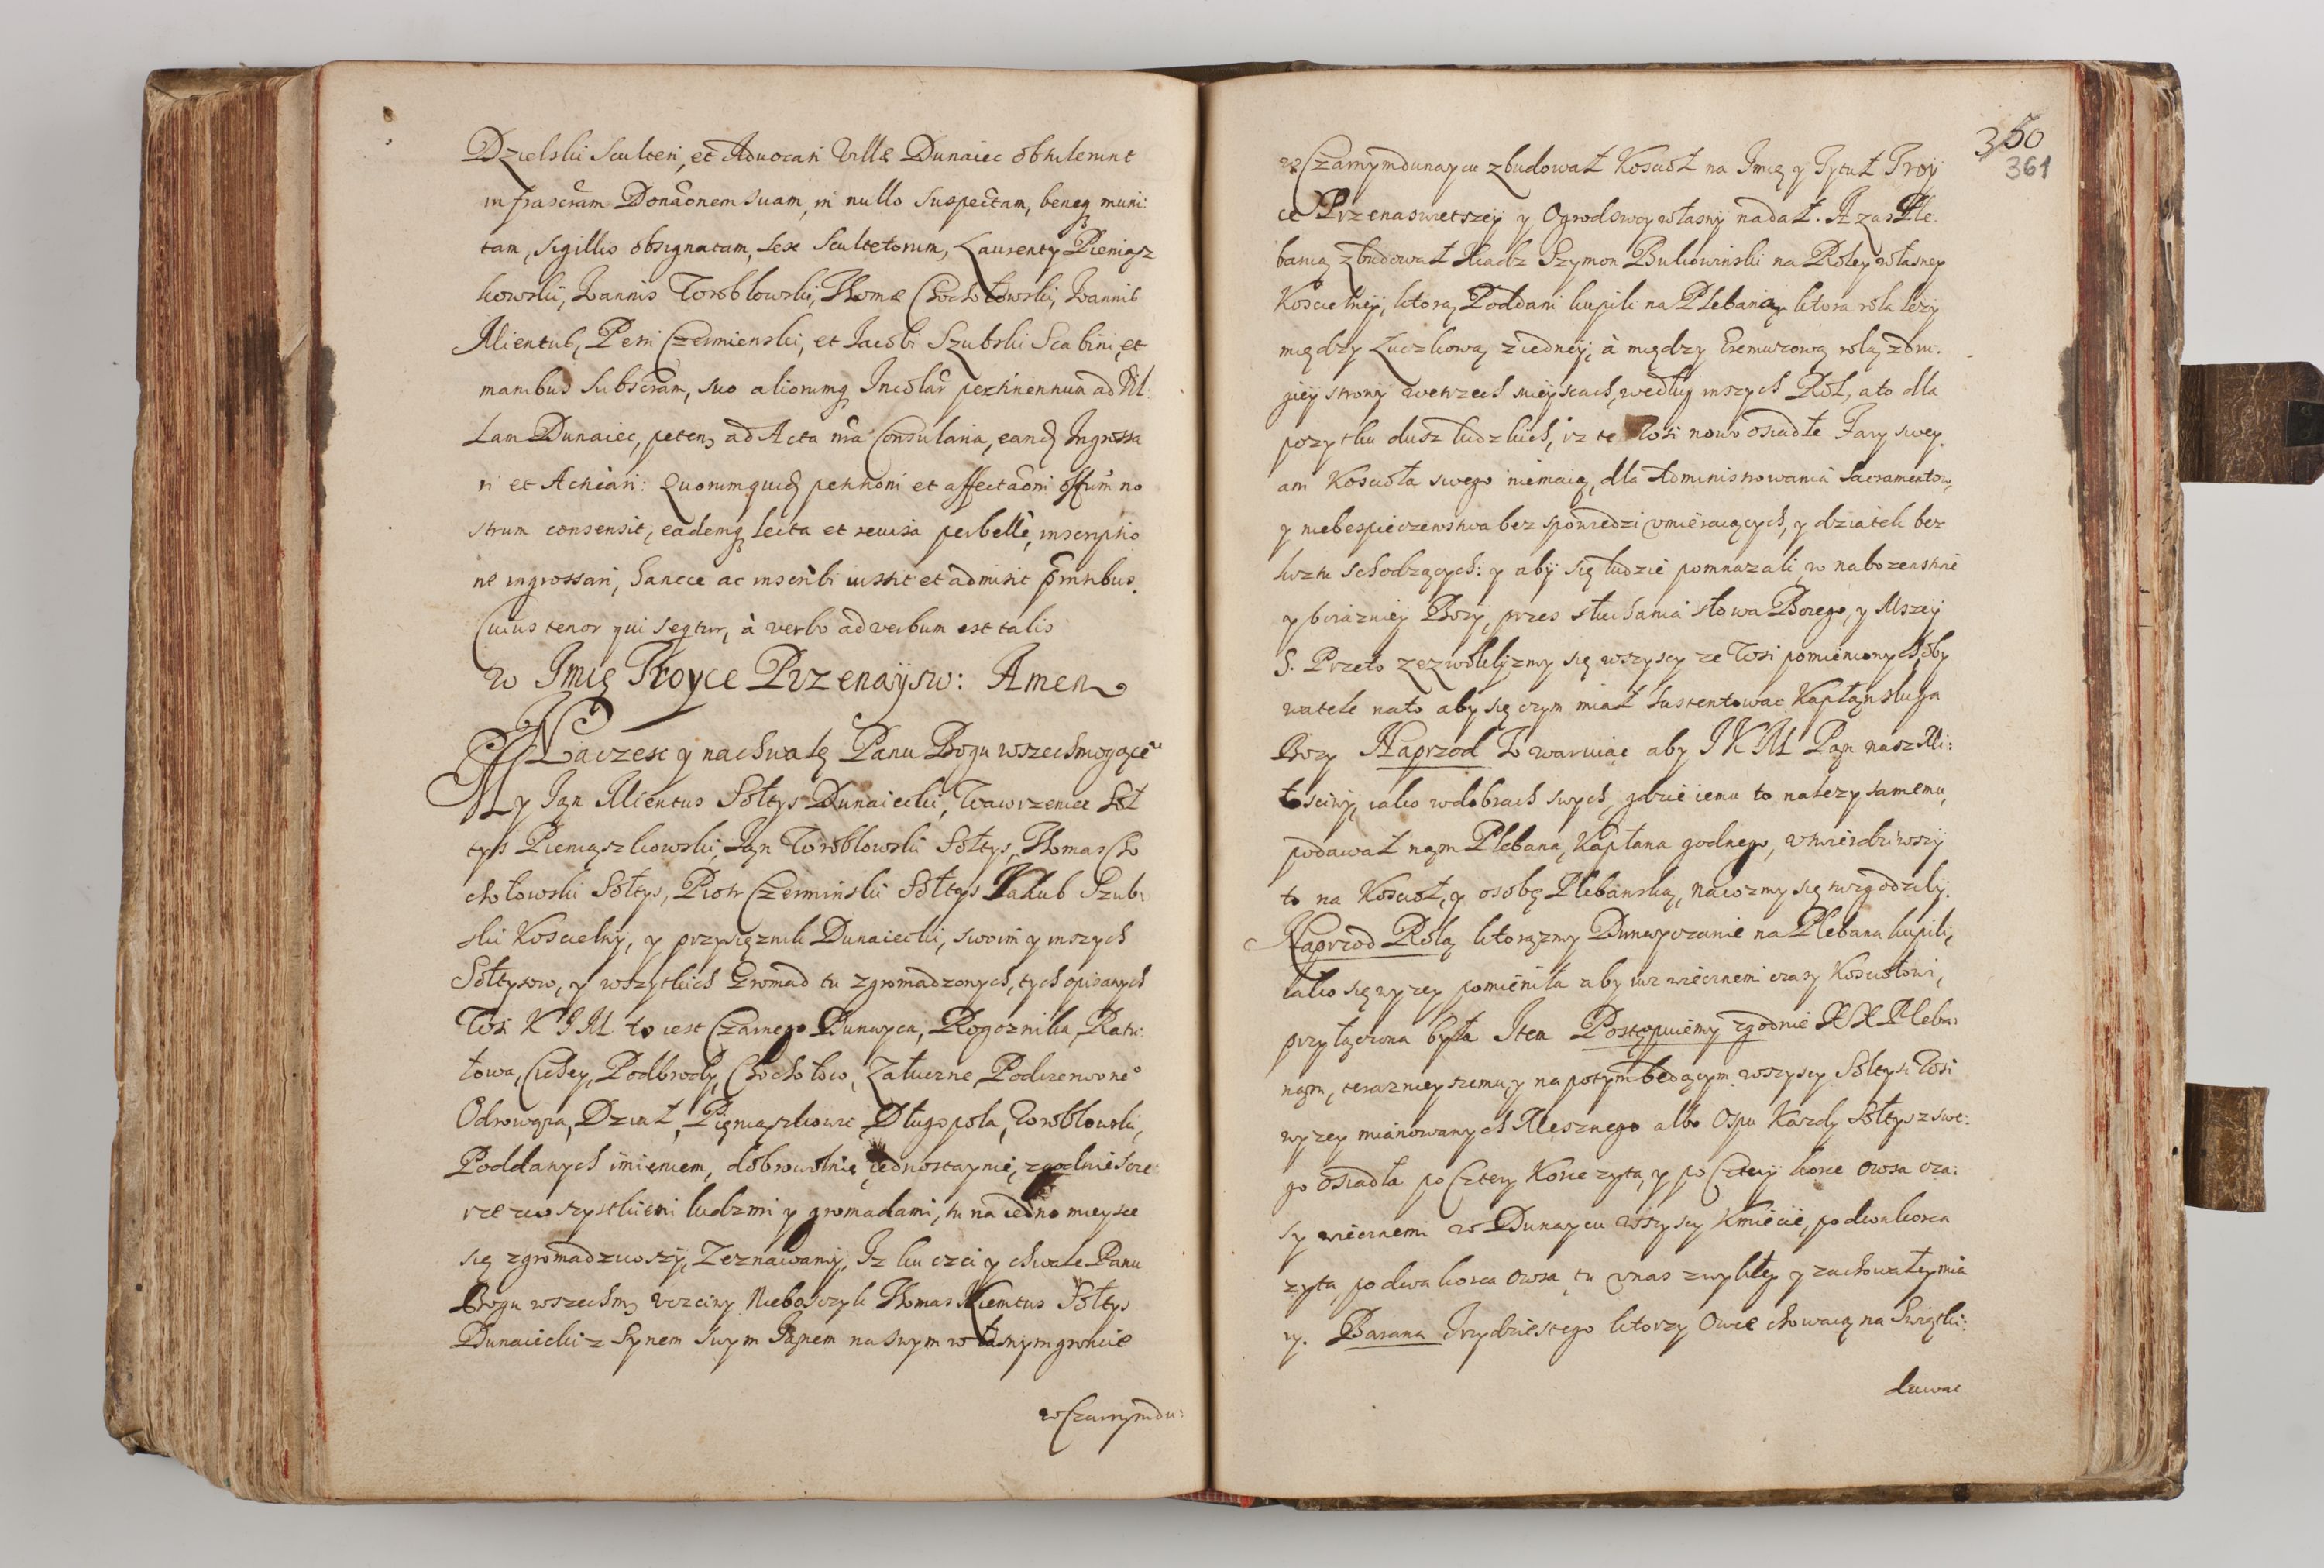 Dzielski Sculteti, et Aduocati Villæ Dunaiec obtulerunt
infrascr̃am Donãonem suam, in nullo suspectam, beneq; muni:
tam, sigillis obsignatam, sex Scultetorum, Laurenty Pieniąsz
kowski, Joannis Wroblowski, Thomæ Chochołowski, Joannis
Mientus, Petri Czermienski, et Jacobi Szubski Scabini, et
manibus subscr̃am, suo aliorumq; Incolar pertinentium ad Vil:
lam Dunaiec, peten; ad Acta nr̃a Consularia, eand; Ingrossa
ri et Acticari: Quorumquid; petitioni et affectaõni offm̃ no
strum consensit, eademq; lecta et reuisa perbelle, inscriptio
ne ingrossari, sancte ac inscribi iussit et admisit p̃ntibus.
Cuius tenor qui seqtur, à verbo ad verbum est talis
w Imię Troyce Przenaysw: Amen
Na czesc y na chwałę Panu Bogu wszechmogące͠
My Jan Mientus Sołtys Dunaiecki, Wawrzeniec Soł
tys Pieniąszkowski, Jan Wroblowski Sołtys, Thomas Cho
chołowski Sołtys, Piotr Czerminski Sołtys Jakub Szub:
ski Koscielny, y przysięznik Dunaiecki, swoim y inszych
Sołtysow, y wszytkich Gromad tu zgromadzonych, tych opisanych
Wsi K J M to iest Czarnego Dunayca, Rogoznika, Ratu:
łowa, Cichey, Podbrody, Chochołow, Załuczne, Podczerwone͠
Odrowąza, Dział, Pięniąszkowic, Długopola, Wroblowki,
Poddanych imieniem, dobrowolnie, iednostaynie, zgodnie scze
rze ze wszystkiemi ludzmi y gromadami, tu na iedno mieysce
się zgromadziwszy, Zeznawamy, Iz ku czci y chwale Panu
Bogu wszechm; vczciwy Nieboszczyk Thomas Miemtus Sołtys
Dunaiecki z Synem swym Janem na swym własnym gruncie
w Czarnymdu:
350
361
w Czarnymdunaycu zbudował Kosciół na Imię y Tytuł Troy
ce Przenaswietszey y Ogrodswoy własny nadał. A zas Ple:
banią zbudował Xiadz Szymon Bukowinski na Roley własney
Koscielney, ktorą Poddani kupili na Plebanią, ktora rola lezy
między Łuczkową z iedney, à między Eremuzową rolą z dru:
giey strony we trzech mieyscach, według inszych Ról, a to dla
pozytku dusz ludzkich, iz te Wsi nowo osiadłe Fary swey
ani Kosciola swego niemaią, dla Administrowania Sacramentow,
y niebespieczenstwa bez spowiedzi vmieraiących, y dziatek bez
krztu schodzących: y aby się ludzie pomnazali w nabozenstwie
y boiazniey Bozy, przes słuchania słowa Bozego, y Mszey
S. Przeto zezwolilizmy się wszyscy ze Wsi pomienionych oby
watele na to aby się czym miał sustentowac Kapłan sługa
Bozy Naprzod To waruiąc aby J K M Pan nasz Mi:
łosciwy, iako w dobrach swych, gdzie iemu to nalezy samemu,
podawał nam Plebana, Kapłana godnego, vtwierdziwszy
to na Kosciół, y osobę Plebanską, na cozmy się tu zgodzily.
Naprzod Rolą ktorązmy Dunayczanie na Plebana kupili,
iako się wyzey pomieniła aby iuz wiecznemi czasy Kosciołowi,
przyłączona była Item Postępuiemy zgodnie XX Pleba:
nam, terazniejszemu, y napotym bedącym wszyscy Sołtysi Wsi
wyzey mianowanych Mesznego albo Ospu Kazdy Sołtys z swe:
go osiadła po Cztery Korce zyta, y po Cztery korce owsa cza:
sy wiecznemi w Dunaycu wszyscy Kmiecie, po dwa korca
zyta, po dwa korca owsa, tu vnas zwykłey y zachowałey mia
ry. Barana Trzydziestego ktorzy Owce chowaią na Swiątki:
dawac